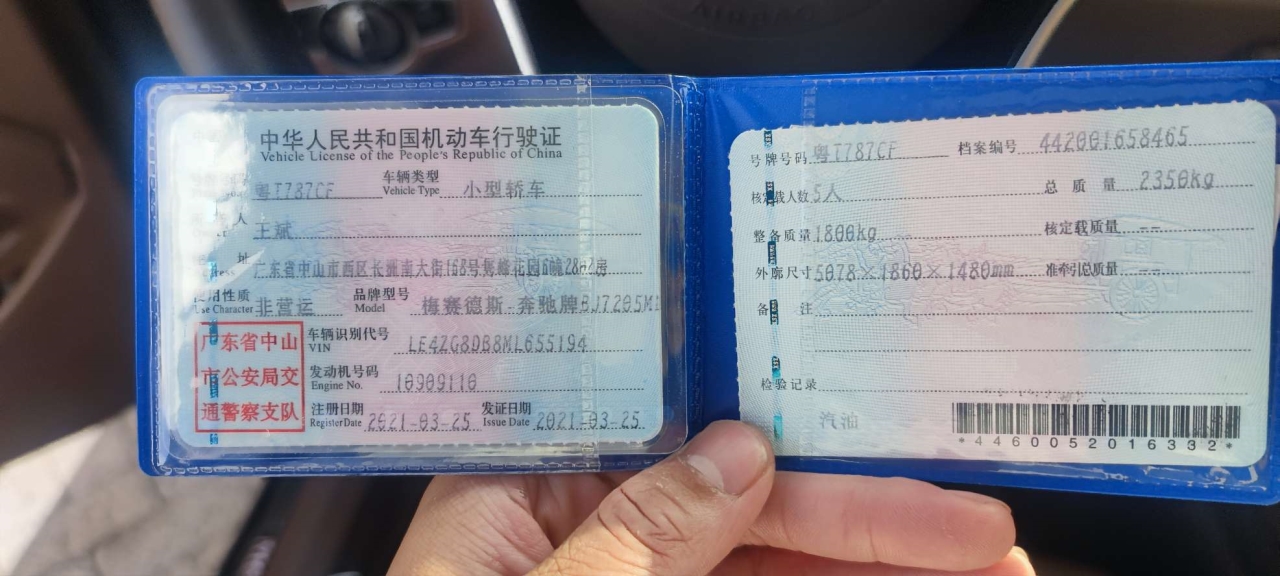 中华人民共和国机动车行驶证
Vehicle License of the People's Republic of China
粤T787CF 车辆类型 Vehicle Type 小型轿车
人 王斌
址 广东省中山市西区长洲南大街168号 峰北花园6幢28 2房
使用性质 Use Character 非营运 品牌型号 Model 梅赛德斯-奔驰牌BJ7205M
广东省中山
市公安局交
通警察支队
车辆识别代号 VIN LE4ZG8DB8ML655194
发动机号码 Engine No. 10909110
注册日期 Register Date 2021-03-25 发证日期 Issue Date 2021-03-25
号牌号码 粤T787CF 档案编号 442001658465
核定载人数 5人 总质量 2350kg
整备质量 1800kg 核定载质量 --
外廓尺寸 5078×1860×1480mm 准牵引总质量 --
备注
检验记录
汽油
*4460052016332*